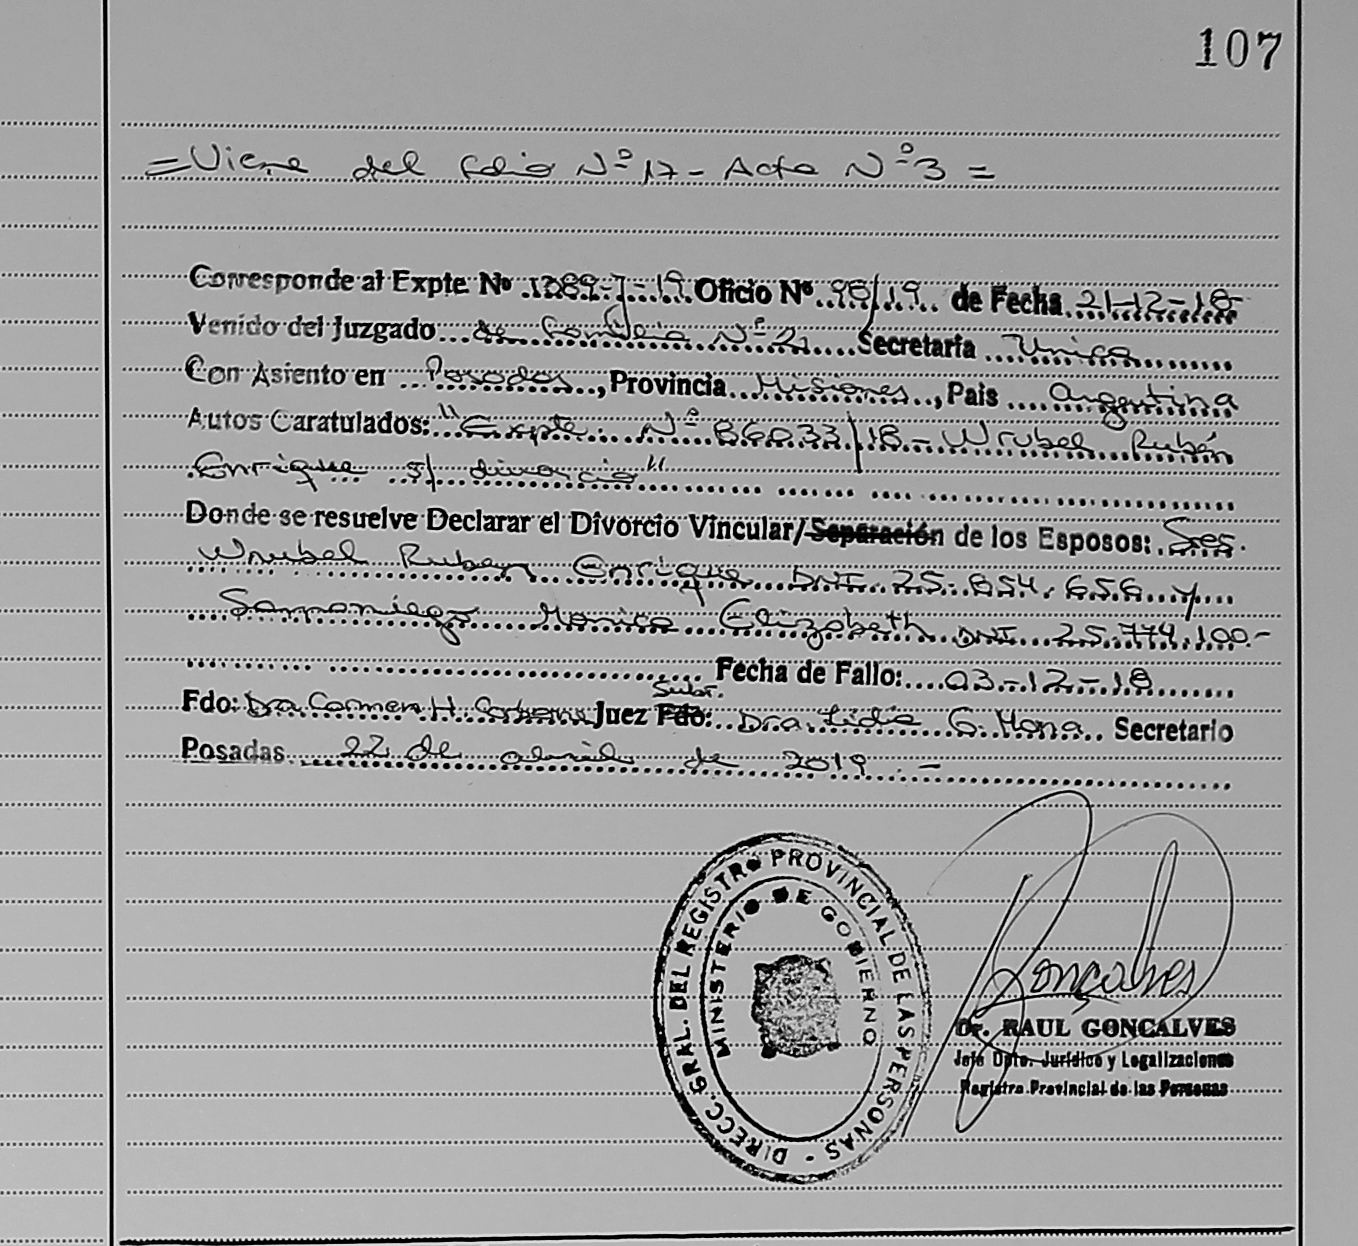 107
= Viene del folio Nº 17 - Acta Nº 3 =
Corresponde al Expte Nº 1289-J-19 Oficio Nº 98/19 de Fecha 21-12-18
Venido del Juzgado de Familia Nº 2 Secretaria Unica
Con Asiento en Posadas, Provincia Misiones, Pais Argentina
Autos Caratulados: "Expte. Nº 86033/18 - Wrubel Rubén
Enrique s/ divorcio"
Donde se resuelve Declarar el Divorcio Vincular/Separación de los Esposos: Sres.
Wrubel Ruben Enrique DNI 25.854.656 y
Samaniego Monica Elizabeth DNI 25.774.100.-
Fecha de Fallo: 03-12-18
Subr.
Fdo: Dra. Carmen H. Juez Fdo: Dra. Lidia G. Mona. Secretario
Posadas 22 de abril de 2019.-
DIRECC. GRAL. DEL REGISTRO PROVINCIAL DE LAS PERSONAS -
MINISTERIO DE GOBIERNO
Gonçalves
Dr. RAUL GONCALVES
Jefe Dpto. Jurídico y Legalizaciones
Registro Provincial de las Personas